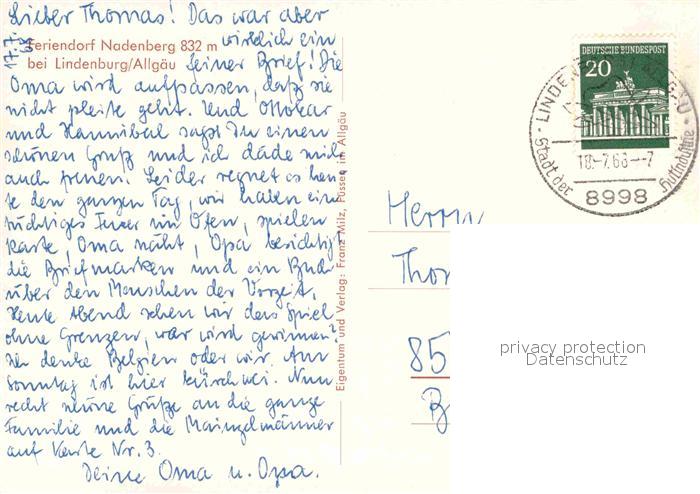 Lieber Thomas! Das war aber
17.7.
Feriendorf Nadenberg 832 m
bei Lindenburg/Allgäu
wirklich ein
feiner Brief! Die
Oma wird aufpassen, daß sie
nicht pleite geht. Und Ottokar
und Hannibal sagst Du einen
schönen Gruß und ich däde mich
auch freuen. Leider regnet es heu-
te den ganzen Tag, wir haben ein
tüchtiges Feuer im Ofen, spielen
Karte, Oma näht, Opa besichtigt
die Briefmarken und ein Buch
über den Menschen der Vorzeit.
Heute Abend sehen wir das Spiel
ohne Grenzen, wer wird gewinnen?
Ich denke Belgien oder wir. Am
Sonntag ist hier Kirchwei. Nun
recht Grüße an die ganze
Familie und die Mainzelmänner
auf Karte Nr. 3.
Deine Oma u. Opa.
Eigentum und Verlag: Franz Milz, Füssen im Allgäu
DEUTSCHE BUNDESPOST
20
LINDENBERG ALLGÄU
18.-7.68--7
Stadt der Hutindustrie
8998
Herrn
Thom
85
B
privacy protection
Datenschutz